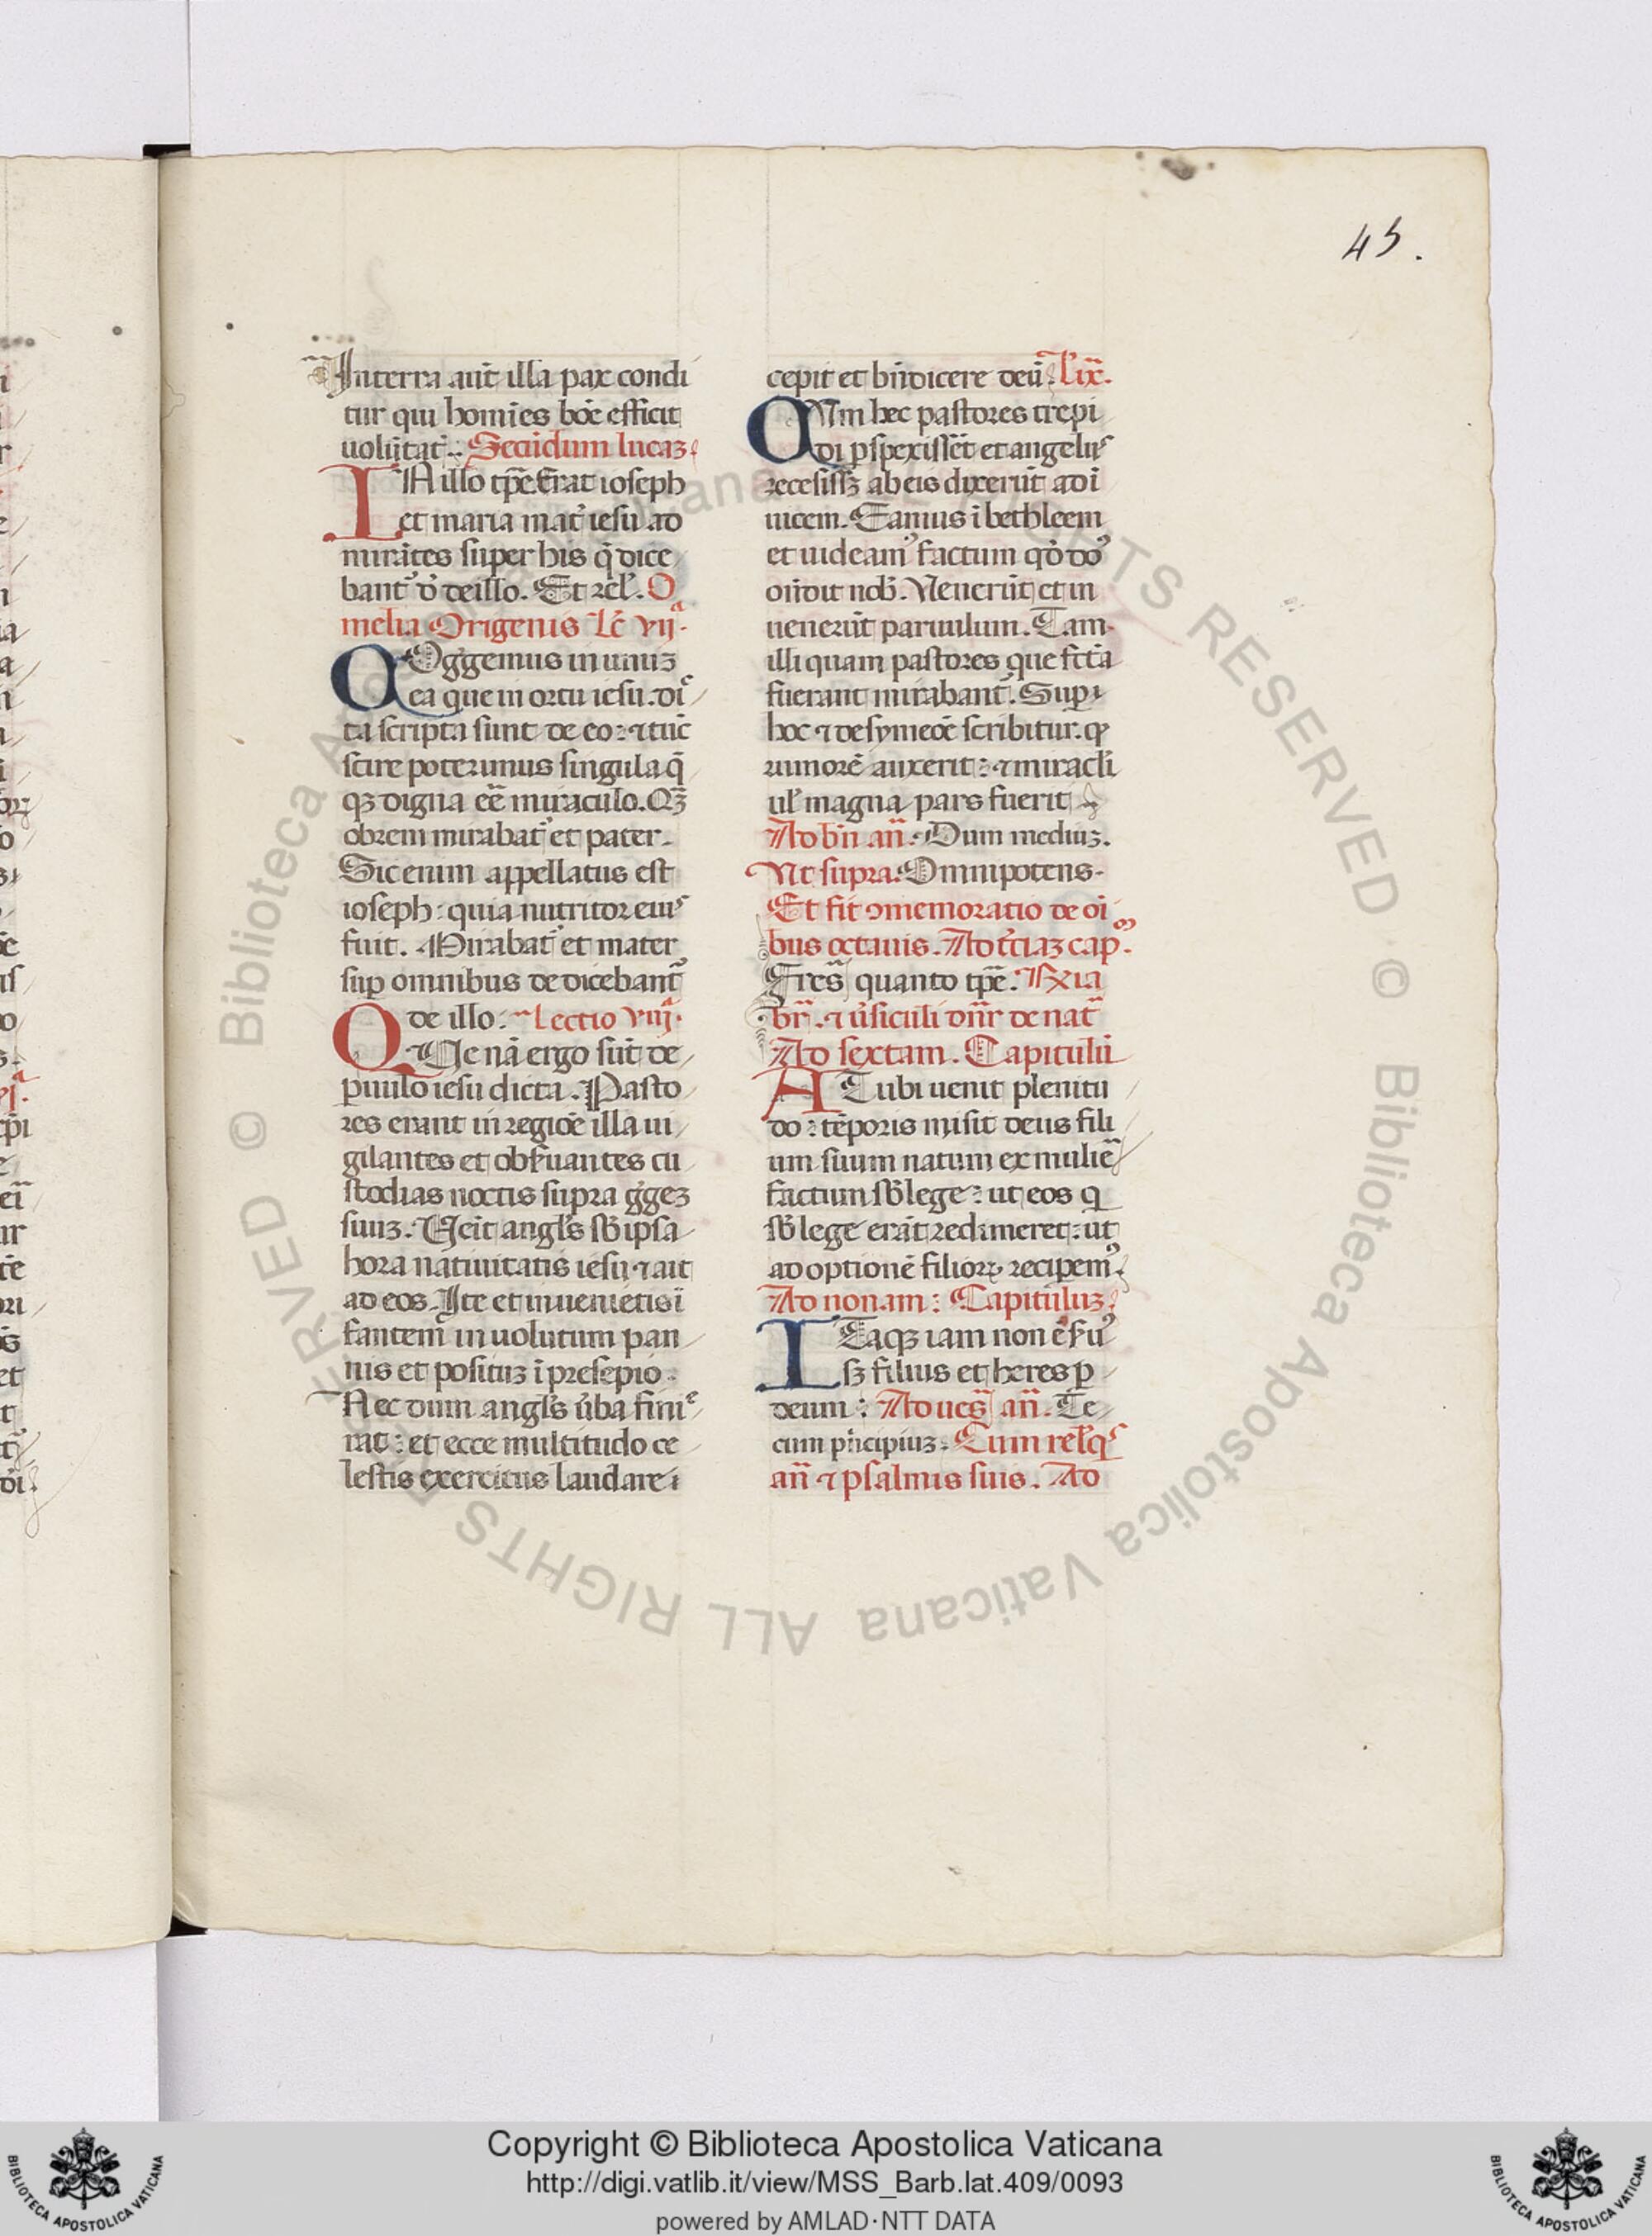 45.
In terra aut̄ illa pax condi
tur qui homīes boē efficit
uolūtat̄. Secūdum lucaꝫ
IN illo tp̄e. Erat ioseph
et maria mat̉ iesu ad
mirātes super his q̄ dice
bant᷑ d̉ de illo. Et rel̉. O
melia Origenis Lc̄ vijᵃ.
COg̉gemus in unuꝫ
ea que in ortu iesu. dic̉
ta scripta sunt de eo: ⁊ tūc
scire poterimus singula q̄
qꝫ digna ēē miraculo. Qꝫ̄
obrem mirabat᷑ et pater.
Sic enim appellatus est
ioseph: quia nutritor eiuˢ
fuit. Mirabat᷑ et mater
suꝑ omnibus de dicebant᷑
de illo: Lectio viijᵃ.
QUe nā ergo sūt de
ꝑuulo iesu dicta. Pasto
res erant in regiōe illa ui
gilantes et obẜuantes cu
stodias noctis supra g̉geꝫ
suuꝫ. Uēit angl̉s sb̄ ipsa
hora natiuitatis iesu ⁊ ait
ad eos. Ite et inuenietis ī
fantem inuolutum pan
nis et posituꝫ ī presepio.
Nec dum angl̉s ūba finiᵉ
rat: et ecce multitudo ce
lestis exercitus laudare
cepit et bn̄dicere deū. L̄ ix.
CUm hec pastores trepi
di ꝑspexissēt et angeluˢ
recesissꝫ ab eis dixerūt ad ī
uicem. Eamus ī bethleem
et uideam᷒ factum qd̉ do᷒
on̄dit nob̉. Uenerūt et in
uenerūt paruulum. Tam
illi quam pastores que fcā
fuerant mirabant᷑. Super
hoc ⁊ de symeōe scribitur. ꝙ
rumorē auxerit: ⁊ miracl̉i
ul̉ magna pars fuerit
Ad bn̄ an̄. Dum mediuꝫ.
Ut supra. Omnipotens.
Et fit ꝯmemoratio de oī
bus octauis. Ad tc̄iaꝫ capᵐ.
Fres̄ quanto tp̄e. R̸xia
br̄. ⁊ ūsiculi dn̄r de nat̄
Ad sextam. Capitulū
AT ubi uenit plenitu
do: tēporis misit deus fili
um suum natum ex muliē
factum sb̄ lege: ut eos q̄
sb̄ lege erāt redimeret: ut
adoptionē filioꝝ recipem᷒.
Ad nonam: Capituluꝫ.
ITaqꝫ iam non ē ẜu᷒
sꝫ filius et heres ꝑ
deum: Ad ues̄ an̄. Te
cum pⁱncipiuꝫ. Cum rel̉qˢ
an̄ ⁊ psalmis suis. Ad
Copyright © Biblioteca Apostolica Vaticana
http://digi.vatlib.it/view/MSS_Barb.lat.409/0093
powered by AMLAD·NTT DATA
BIBLIOTECA APOSTOLICA VATICANA
BIBLIOTECA APOSTOLICA VATICANA
© Biblioteca Apostolica Vaticana ALL RIGHTS RESERVED
© Biblioteca Apostolica Vaticana ALL RIGHTS RESERVED